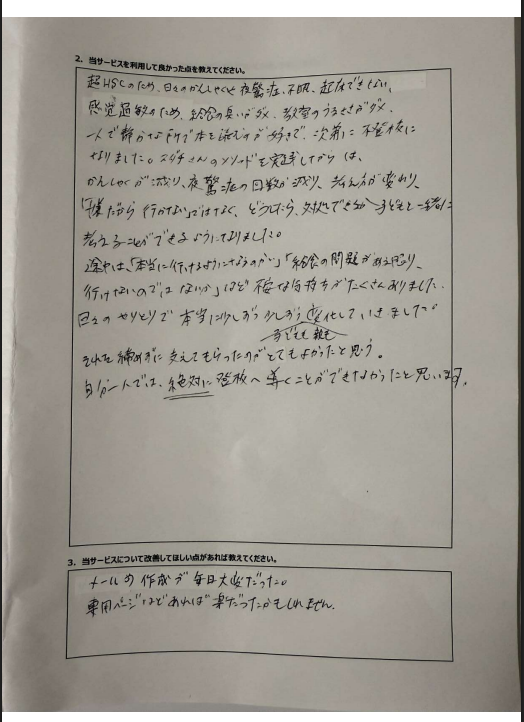 2. 当サービスを利用して良かった点を教えてください。
超HSCのため、日々のかんしゃくと夜驚症、不眠、起床できない、
感覚過敏のため、給食の臭いがダメ、教室のうるささがダメ、
一人で静かな所で本を読むのが好きで、次第に不登校に
なりました。スダチさんのメソッドを実践してからは、
かんしゃくが減り、夜驚症の回数が減り、考え方が変わり、
「嫌だから行かない」ではなく、どうしたら、対処できるか子どもと一緒に
考えることができるようになりました。
途中は、「本当に行けるようになるのか」「給食の問題がある限り、
行けないのではないか」など不安な気持ちがたくさんありました。
日々のやりとりで本当に少しずつ少しずつ変化していきました。
子どもも親も
それを諦めずに支えてもらったのがとてもよかったと思う。
自分一人では、絶対に登校へ導くことができなかったと思います。
3. 当サービスについて改善してほしい点があれば教えてください。
メールの作成が毎日大変だった。
専用ページなどあれば楽だったかもしれません。